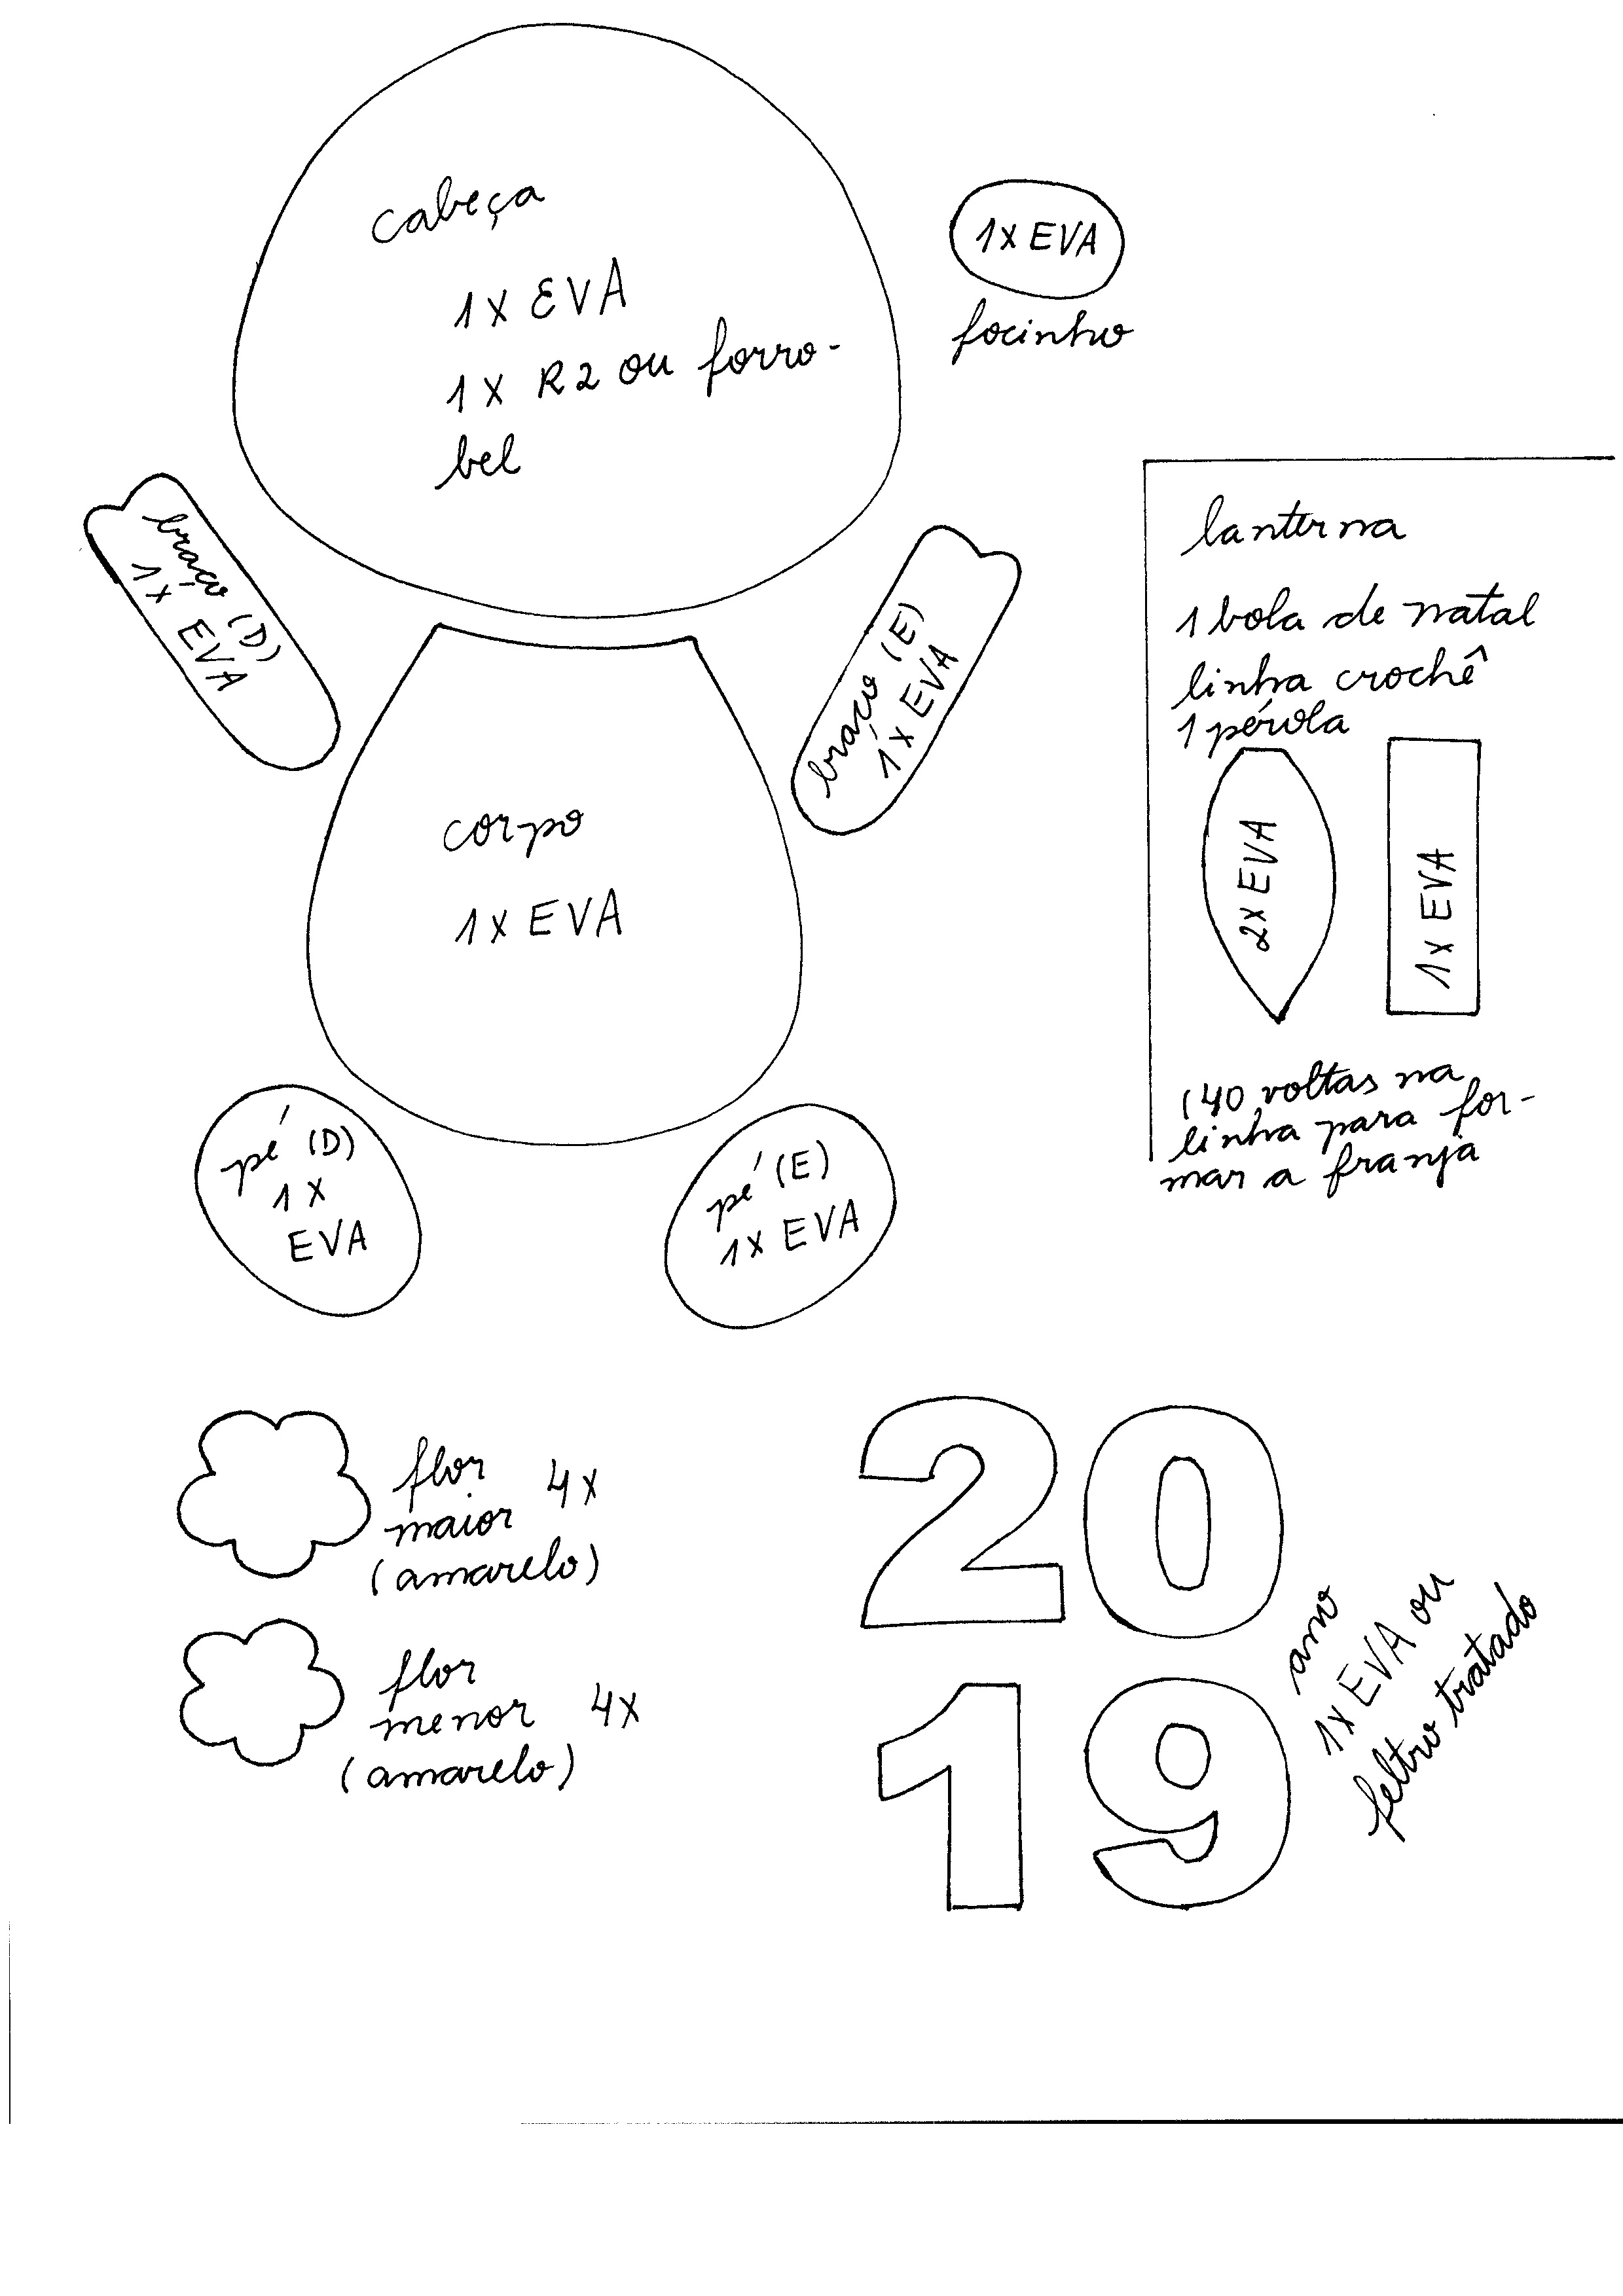 cabeça
1x EVA
1x R2 ou forro-
bel
1x EVA
focinho
braço (D)
1x
EVA
braço (E)
1x EVA
corpo
1x EVA
pé (D)
1x
EVA
pé (E)
1x EVA
lanterna
1 bola de natal
linha crochê
1 pérola
2x EVA
1x EVA
(40 voltas na
linha para for-
mar a franja
flor 4x
maior
(amarelo)
flor
menor 4x
(amarelo)
20
19
ano
1x EVA ou
feltro tratado